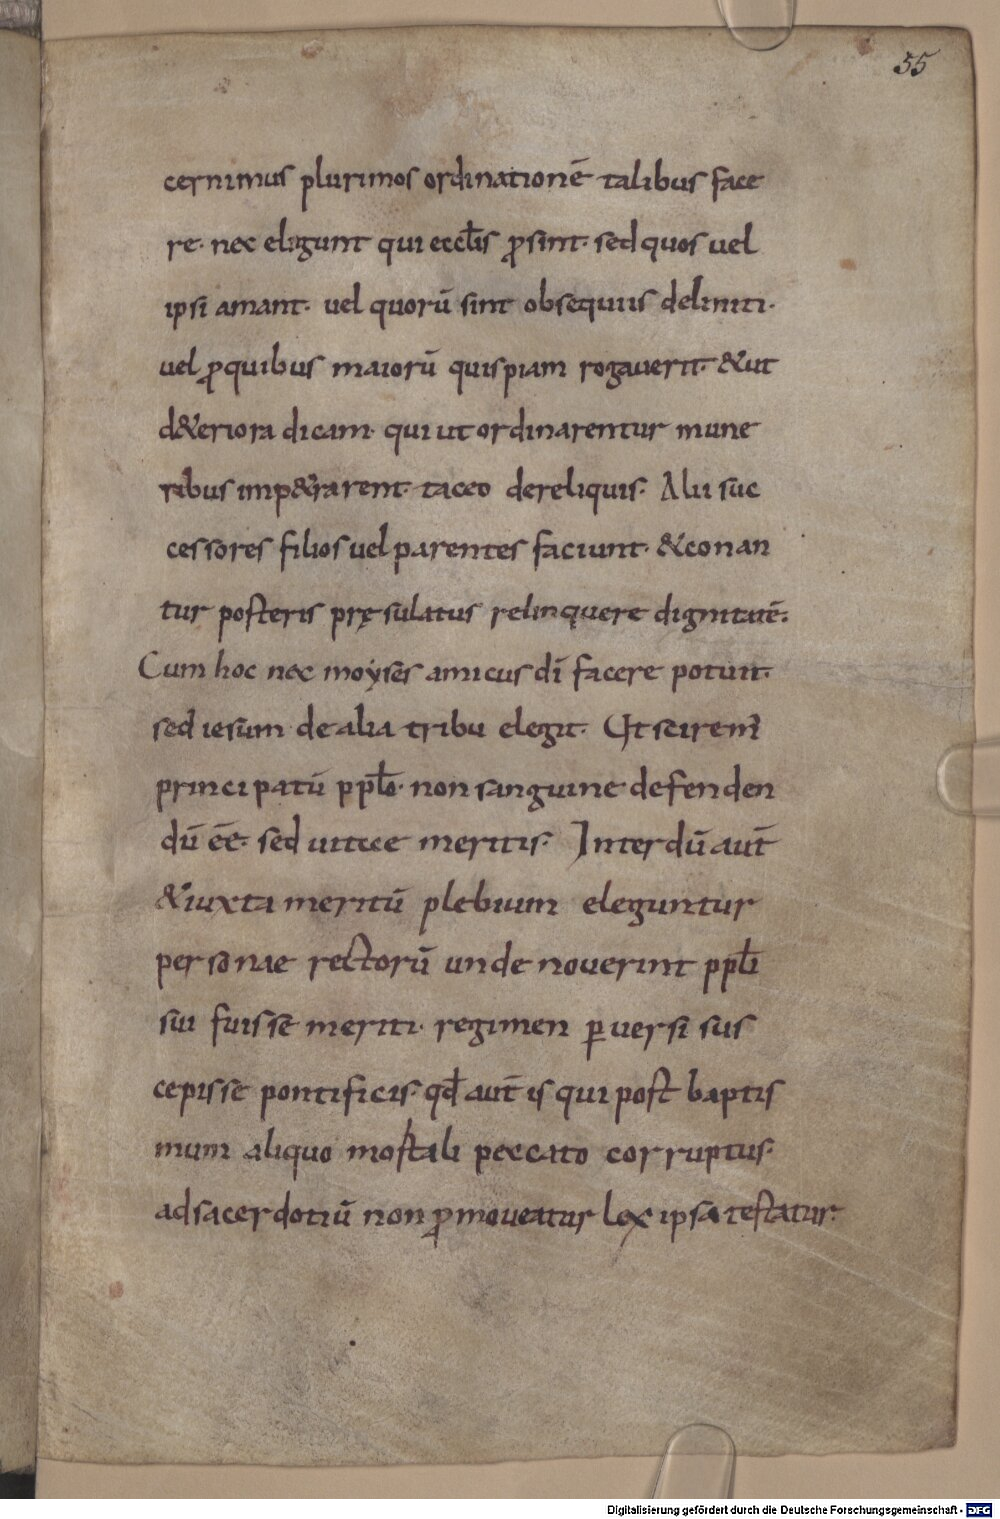 55
cernimus plurimos ordinationē talibus face
re· nec elegunt qui eccl̄is ꝓsint· sed quos uel
ipsi amant· uel quorū sint obsequiis deliniti·
uel ꝓquibus maiorū quispiam rogauerit· &ut
d&eriora dicam· qui ut ordinarentur mune
ribus imp&rarent· taceo dereliquis· Alii suc
cessores filios uel parentes faciunt· &conan
tur posteris pręsulatus relinquere dignitatē·
Cum hoc nec moyses amicus dī facere potuit·
sed iesum de alia tribu elegit· Ut scirem̄
principatū ppl̄o· non sanguine defenden
dū ēe· sed uitae meritis· Interdū aūt
&iuxta meritū plebium eleguntur
personae rectorū unde nouerint ppl̄i
sui fuisse meriti· regimen ꝑuersi sus
cepisse pontificis· qd̄ aūt is qui post baptis
mum aliquo mortali peccato corruptus·
adsacerdotiū non ꝓmoueatur lex ipsa testatur·
Digitalisierung gefördert durch die Deutsche Forschungsgemeinschaft - DFG